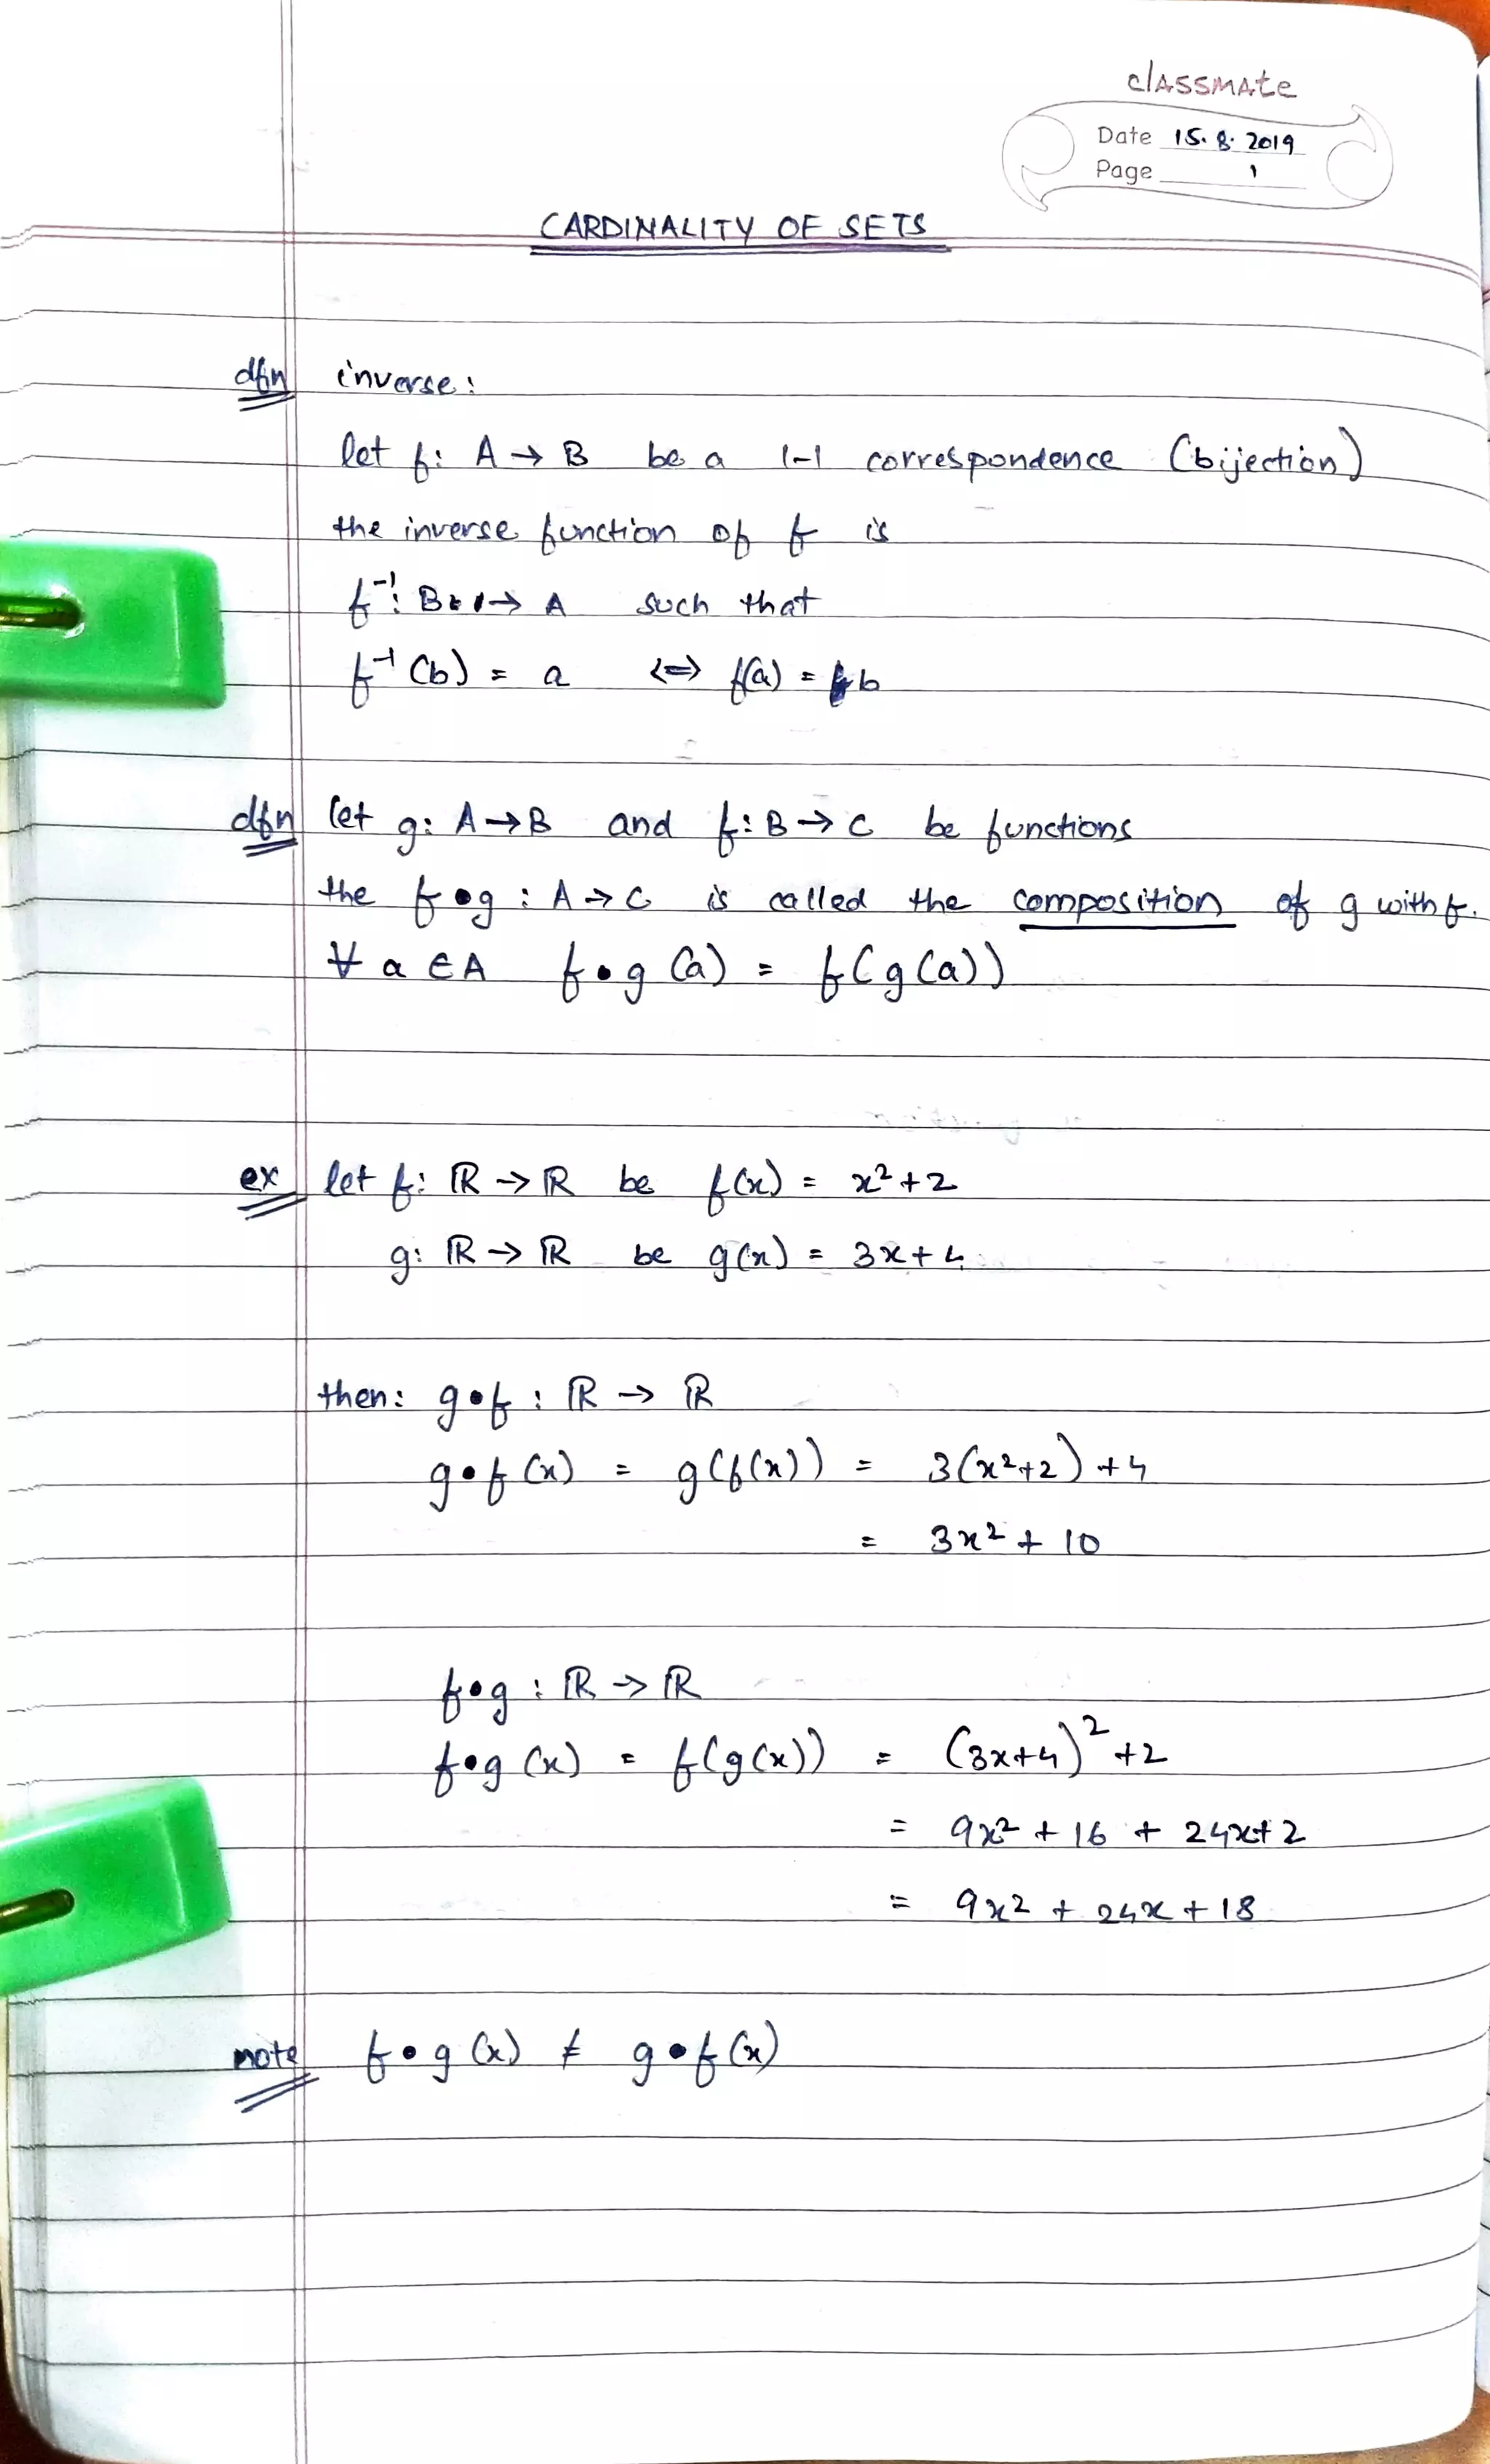 classmate
Date 15.8.2019
Page 1
CARDINALITY OF SETS
dfn inverse:
let f: A → B be a 1-1 correspondence (bijection)
the inverse function of f is
f⁻¹: B → A such that
f⁻¹(b) = a ⇔ f(a) = b
dfn let g: A → B and f: B → C be functions
the f•g : A → C is called the composition of g with f.
∀ a ∈ A f•g (a) = f(g(a))
ex let f: ℝ → ℝ be f(x) = x²+2
g: ℝ → ℝ be g(x) = 3x+4
then: g•f : ℝ → ℝ
g•f (x) = g(f(x)) = 3(x²+2)+4
= 3x² + 10
f•g : ℝ → ℝ
f•g (x) = f(g(x)) = (3x+4)²+2
= 9x² + 16 + 24x+2
= 9x² + 24x + 18
note f•g (x) ≠ g•f (x)